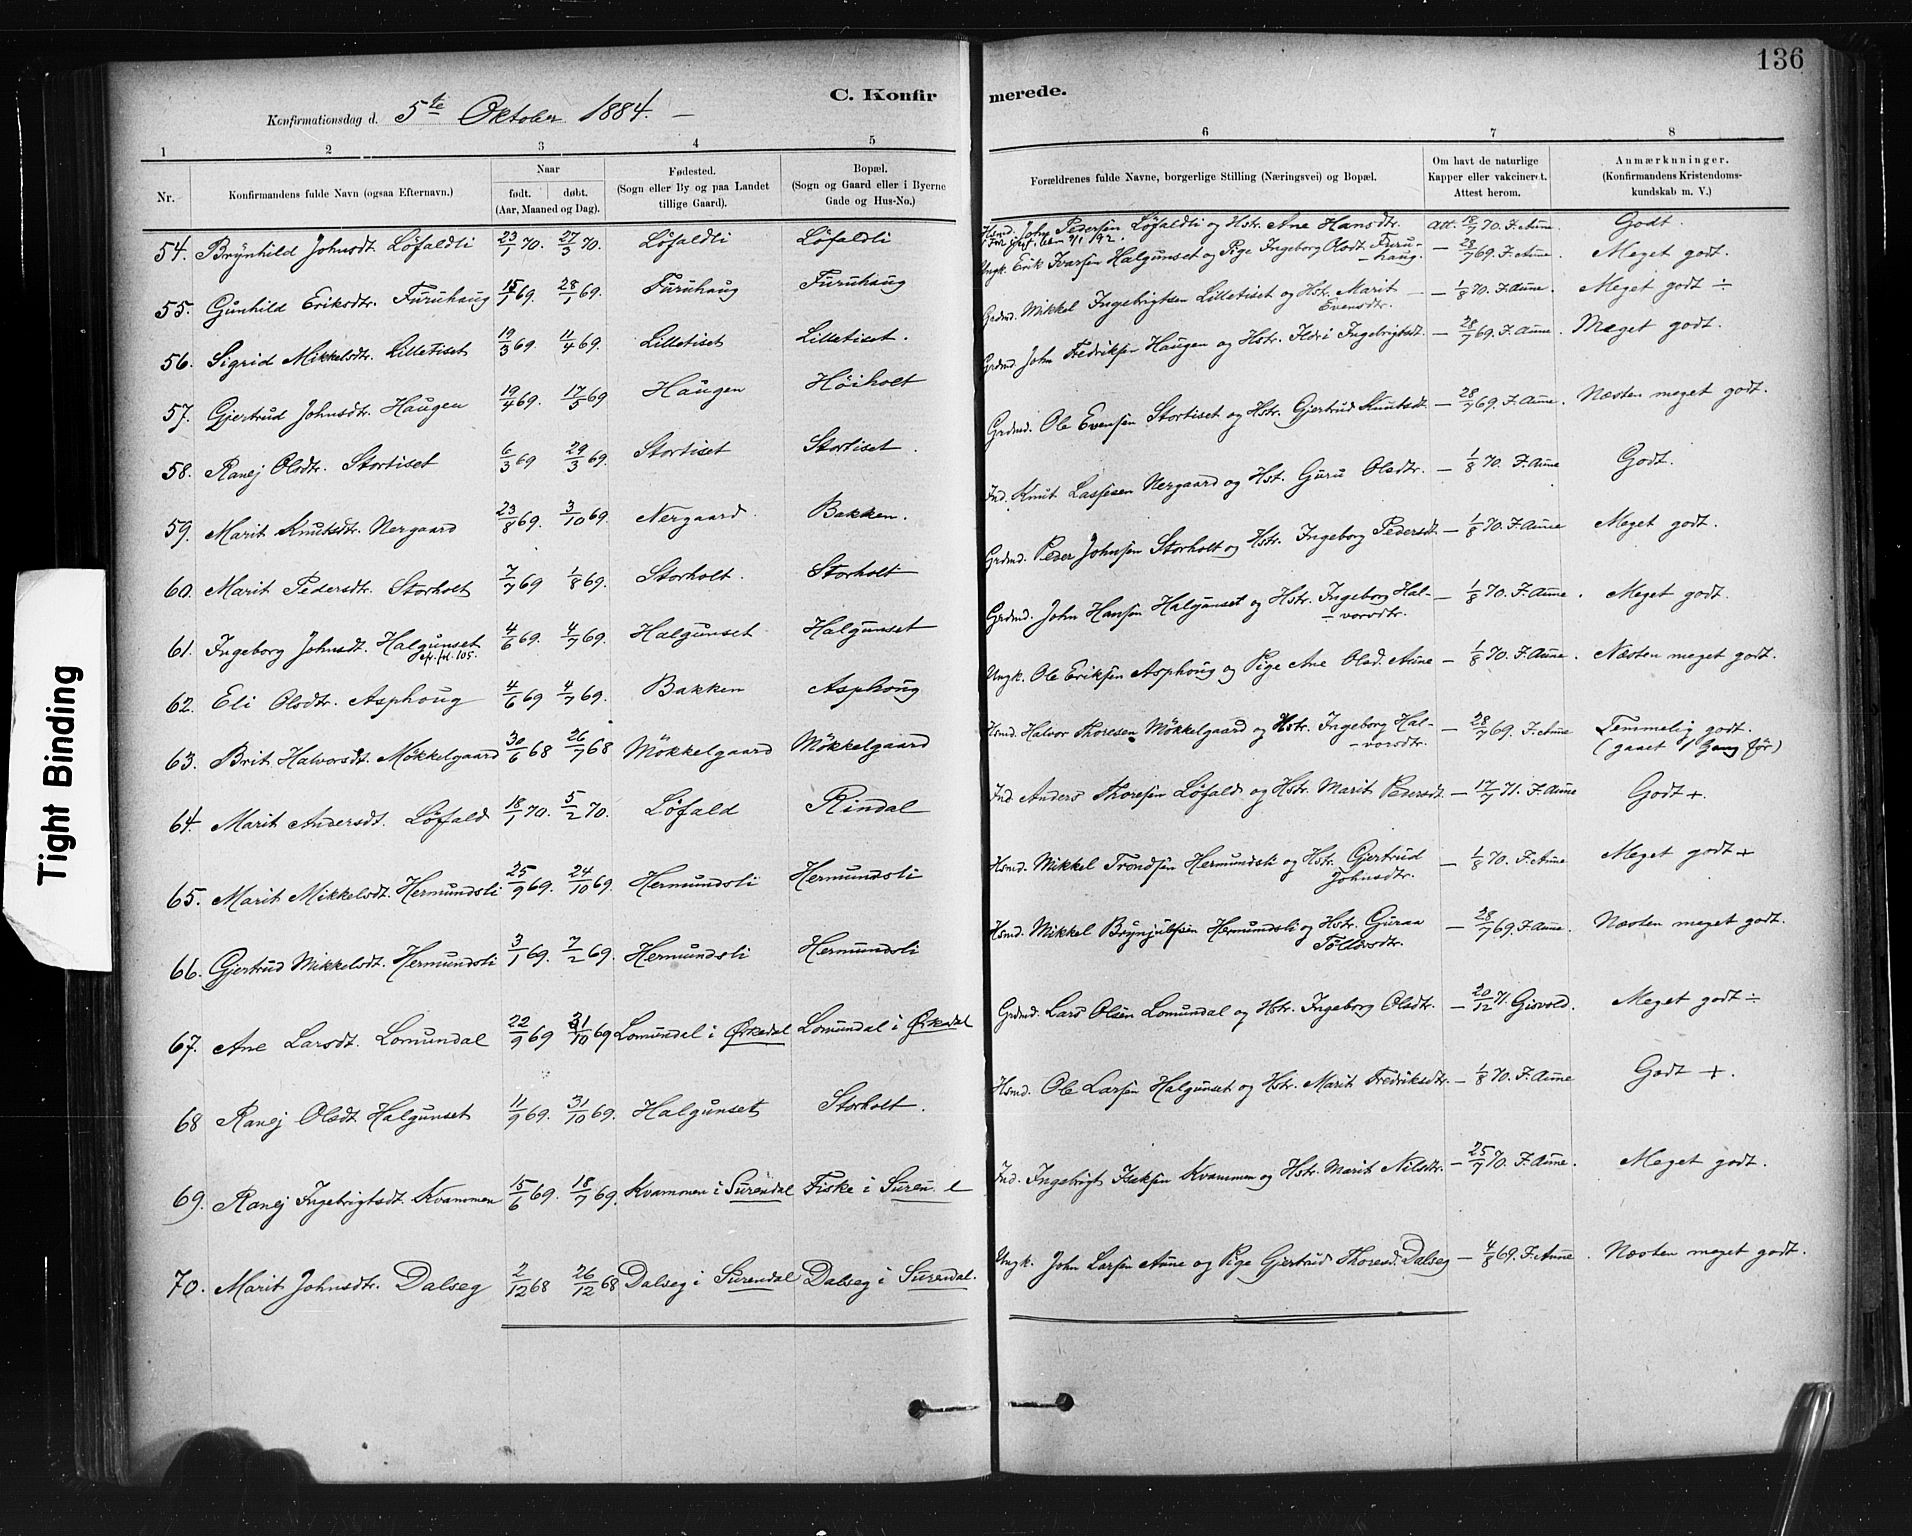 136
C. Konfirmerede.
Konfirmationsdag d. 5te Oktober 1884. —
1 2 3 4 5 6 7 8
Nr. Konfirmandens fulde Navn (ogsaa Efternavn.) Naar født. døbt. (Aar, Maaned og Dag). Fødested. (Sogn eller By og paa Landet tillige Gaard). Bopæl. (Sogn og Gaard eller i Byerne Gade og Hus-No.) Forældrenes fulde Navne, borgerlige Stilling (Næringsvei) og Bopæl. Om havt de naturlige Kapper eller vakcineret. Attest herom. Anmærkninger. (Konfirmandens Kristendomskundskab m. V.)
54. Brynhild Johnsdt. Løfaldli 23/1 70. 27/3 70. Løfaldli Løfaldli Hsmd. John Pedersen Løfaldli og Hstr. Ane Hansdtr. Att. 18/7 70. F. Aune. Godt.
55. Gunhild Eriksdtr. Furuhaug 15/1 69. 28/1 69. Furuhaug Furuhaug Ungk. Erik Ivarsen Halgunset og Pige Ingeborg Olsdt. Furuhaug. — 28/7 69. F. Aune. Meget godt.
56. Sigrid Mikkelsdtr. Lilletiset 19/3 69. 11/4 69. Lilletiset Lilletiset. Grdmd. Mikkel Ingebrigtsen Lilletiset og Hstr. Marit Evensdtr. — 1/8 70. F. Aune. Meget godt ÷
57. Gjertrud Johnsdtr. Haugen 19/4 69. 17/5 69 Haugen Høiholt Grdmd. John Fredriksen Haugen og Hstr. Ildri Ingebrigtsdt. — 28/7 69. F. Aune. Meget godt.
58. Ranej Olsdtr. Stortiset 6/3 69 29/3 69. Stortiset Stortiset. Grdmd. Ole Evensen Stortiset og Hstr. Gjertrud Knutsdt. — 28/7 69. F. Aune. Næsten meget godt.
59. Marit Knutsdtr. Nergaard 23/8 69. 3/10 69. Nergaard. Bakken. Ind. Knut Lassesen Nergaard og Hst. Guru Olsdtr. — 1/8 70. F. Aune Godt.
60. Marit Pedersdtr. Storholt 7/7 69 1/8 69. Storholt. Storholt Grdmd. Peder Johnsen Storholt og Hstr. Ingeborg Pedersdt. — 1/8 70. F. Aune Meget godt.
61. Ingeborg Johnsdt. Halgunset cfr. fol. 105. 4/6 69. 4/7 69. Halgunset Halgunset Grdmd. John Hansen Halgunset og Hstr. Ingeborg Halvorsdtr. — 1/8 70. F. Aune. Meget godt.
62. Eli Olsdtr. Asphoug 4/6 69 4/7 69. Bakken Asphoug Ungk. Ole Eriksen Asphoug og Pige Ane Olsd. Aune — 1/8 70. F. Aune. Næsten meget godt.
63. Brit Halvorsdt. Møkkelgaard 30/6 68 26/7 68 Møkkelgaard Møkkelgaard Hsmd. Halvor Thoresen Møkkelgaard og Hstr. Ingeborg Halvorsdtr. — 28/7 69. F. Aune Temmelig godt. (gaaet 1 Gang før)
64. Marit Andersdt. Løfald 18/1 70. 5/2 70. Løfald Rindal Ind. Anders Thoresen Løfald og Hstr. Marit Pedersdt. — 17/7 71. F. Aune Godt +.
65. Marit Mikkelsdt. Hermundsli 25/9 69. 24/10 69. Hermundsli Hermundsli Hsmd. Mikkel Trondsen Hermundsli og Hstr. Gjertrud Johnsdtr. — 1/8 70. F. Aune Meget godt +
66. Gjertrud Mikkelsdt. Hermundsli 3/1 69. 7/2 69. Hermundsli Hermundsli Hsmd. Mikkel Brynjulfsen Hermundsli og Hstr. Guraa Tøllevsdtr. — 28/7 69. F. Aune. Næsten meget godt.
67. Ane Larsdt. Lomundal 22/9 69 31/10 69 Lomundal i Ørkedal Lomundal i Ørkedal Grdmd. Lars Olsen Lomundal og Hstr. Ingeborg Olsdtr. — 20/12 71. Gisvold. Meget godt ÷
68 Ranej Olsdt. Halgunset 11/9 69. 31/10 69. Halgunset Storholt. Hsmd. Ole Larsen Halgunset og Hstr. Marit Fredriksdtr. — 1/8 70. F. Aune Godt +.
69. Ranej Ingebrigtsdt. Kvammen 15/6 69. 18/7 69. Kvammen i Surendal Fiske i Suren l Ind. Ingebrigt Isaksen Kvammen og Hstr. Marit Nilsdtr. — 25/7 70. F. Aune. Meget godt.
70. Marit Johnsdtr. Dalseg 2/12 68 26/12 68 Dalseg i Surendal Dalseg i Surendal. Ungk. John Larsen Aune og Pige Gjertrud Thoresd. Dalseg — 4/8 69. F. Aune. Næsten meget godt.
Tight Binding